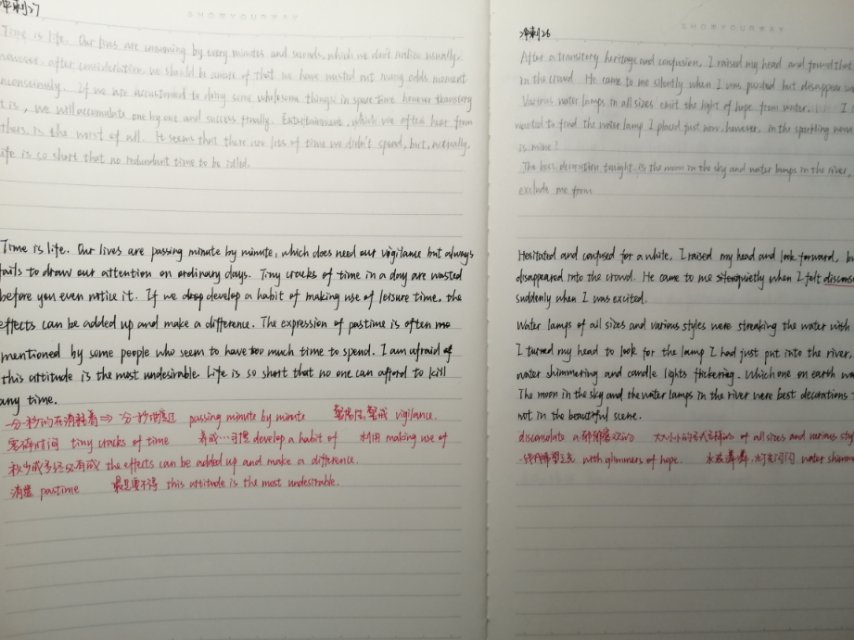 冲刺27
SHOWYOURWAY
Time is life. Our lives are by every minutes and seconds, which we don't notice usually.
however, after consideration, we should be aware of that we have wasted out many odds moment
unconsciously. If we are accustomed to doing some wholesome things in spare time however transitory
it is, we will accumulate one by one and success finally. Entertainment, which we often hear from
others, is the worst of all. It seems that there are lots of time we didn't spend, but, actually,
life is so short that no redundant time to be killed.
Time is life. Our lives are passing minute by minute, which does need our vigilance but always
fails to draw our attention on ordinary days. Tiny cracks of time in a day are wasted
before you even notice it. If we develop a habit of making use of leisure time, the
effects can be added up and make a difference. The expression of pastime is often
mentioned by some people who seem to have too much time to spend. I am afraid of
this attitude is the most undesirable. Life is so short that no one can afford to kill
any time.
一分一秒的在消耗着 => 一分一秒 passing minute by minute 警戒 vigilance.
零碎时间 tiny cracks of time 养成…习惯 develop a habit of 利用 making use of
the effects can be added up and make a difference.
消遣 pastime 最是要不得 this attitude is the most undesirable.
冲刺26
SHOWYOURWAY
After a transitory and confusion, I raised my head and found that
in the crowd. He came to me silently when I was but disappear
Various water lamps in all sizes emit the light of hope from water. I
wanted to find the water lamp I placed just now, however, in the sparkling
is mine?
The best decoration tonight is the moon in the sky and water lamps in the river,
exclude me from
Hesitated and confused for a while, I raised my head and look forward,
disappeared into the crowd. He came to me quietly when I felt
suddenly when I was excited.
Water lamps of all sizes and various styles were streaking the water with
I turned my head to look for the lamp I had just put into the river,
water shimmering and candle lights flickering. Which one on earth
The moon in the sky and the water lamps in the river were best decorations
not in the beautiful scene.
disconsolate a. 大大小小的各式各样的 of all sizes and various
with glimmers of hope. 水波 water